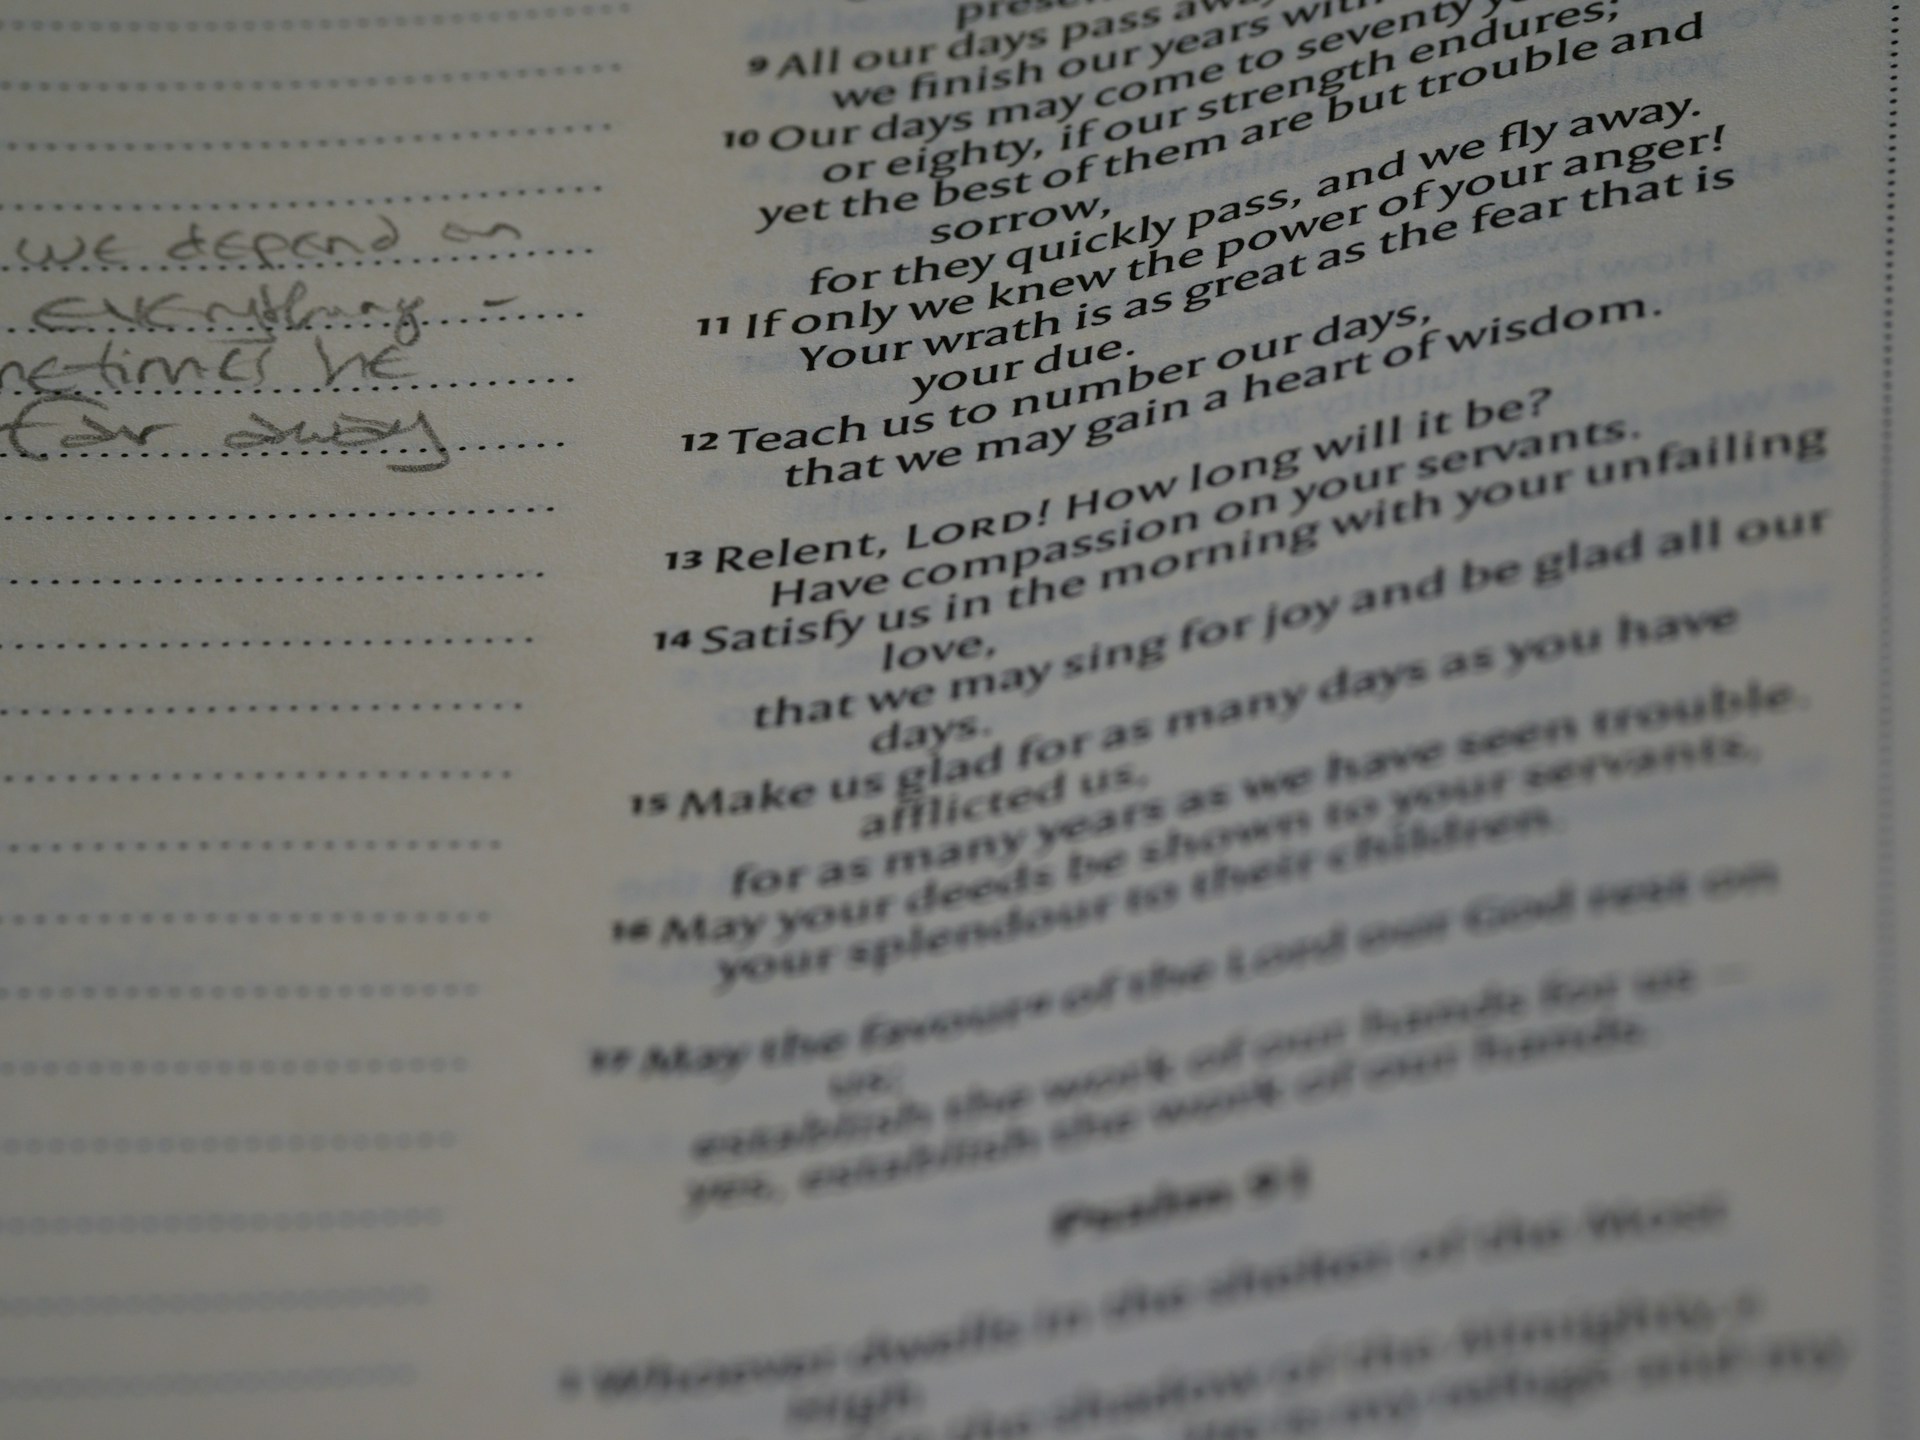 we depend on
everything -
he
far away
9 All our days pass
we finish our years
10 Our days may come to seventy
or eighty, if our strength endures;
yet the best of them are but trouble and
sorrow,
for they quickly pass, and we fly away.
11 If only we knew the power of your anger!
Your wrath is as great as the fear that is
your due.
12 Teach us to number our days,
that we may gain a heart of wisdom.
13 Relent, LORD! How long will it be?
Have compassion on your servants.
14 Satisfy us in the morning with your unfailing
love,
that we may sing for joy and be glad all our
days.
15 Make us glad for as many days as you have
afflicted us,
for as many years as we have seen trouble.
16 May your deeds be shown to your servants,
your splendour to their children.
17 May the favour of the Lord our God rest on
us;
establish the work of our hands for us –
yes, establish the work of our hands.
Psalm 91
Whoever dwells in the shelter of the Most
High